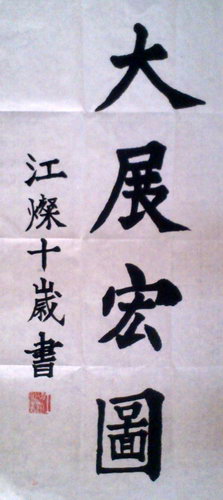 大展宏圖
江燦十歲書